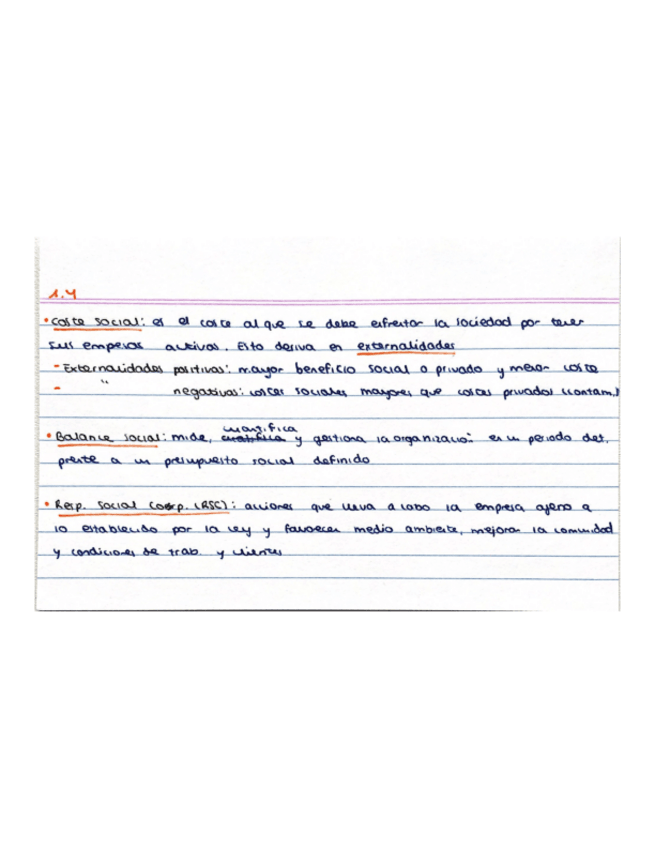 1.4
• Coste social: es el coste al que se debe enfrentar la sociedad por tener
sus empresas activas. Esto deriva en externalidades
- Externalidades positivas: mayor beneficio social o privado y menor coste
- " negativas: costes sociales mayores que costes privados (contam.)
cuantifica
• Balance social: mide, cuantifica y gestiona la organizació: en un periodo det.
frente a un presupuesto social definido
• Resp. Social Corp. (RSC): acciones que lleva a cabo la empresa ajeno a
lo establecido por la ley y favorecer medio ambiente, mejorar la comunidad
y condiciones de trab. y clientes